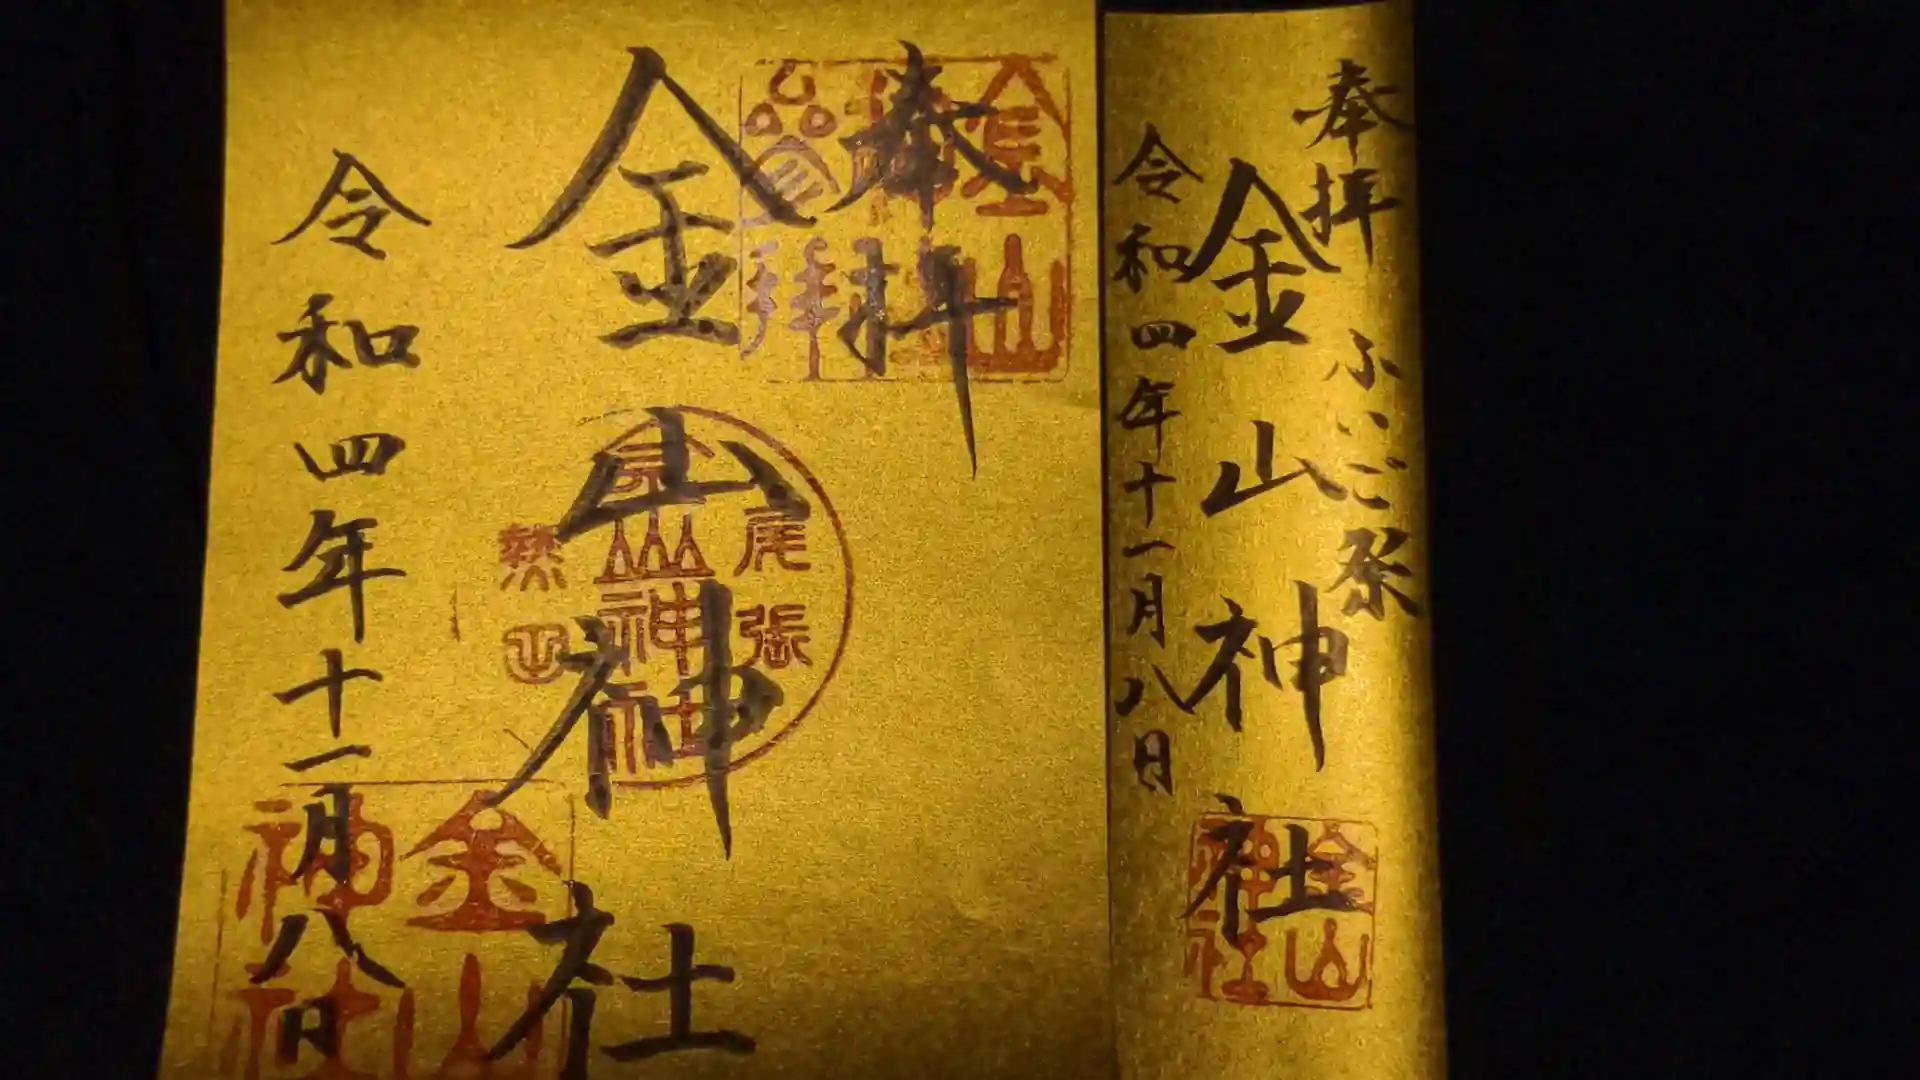 奉拝
ふいご祭
金山神社
令和四年十一月八日
金山神社
奉拝
金山神社
令和四年十一月八日
尾張
金山神社
熱田
金山神社